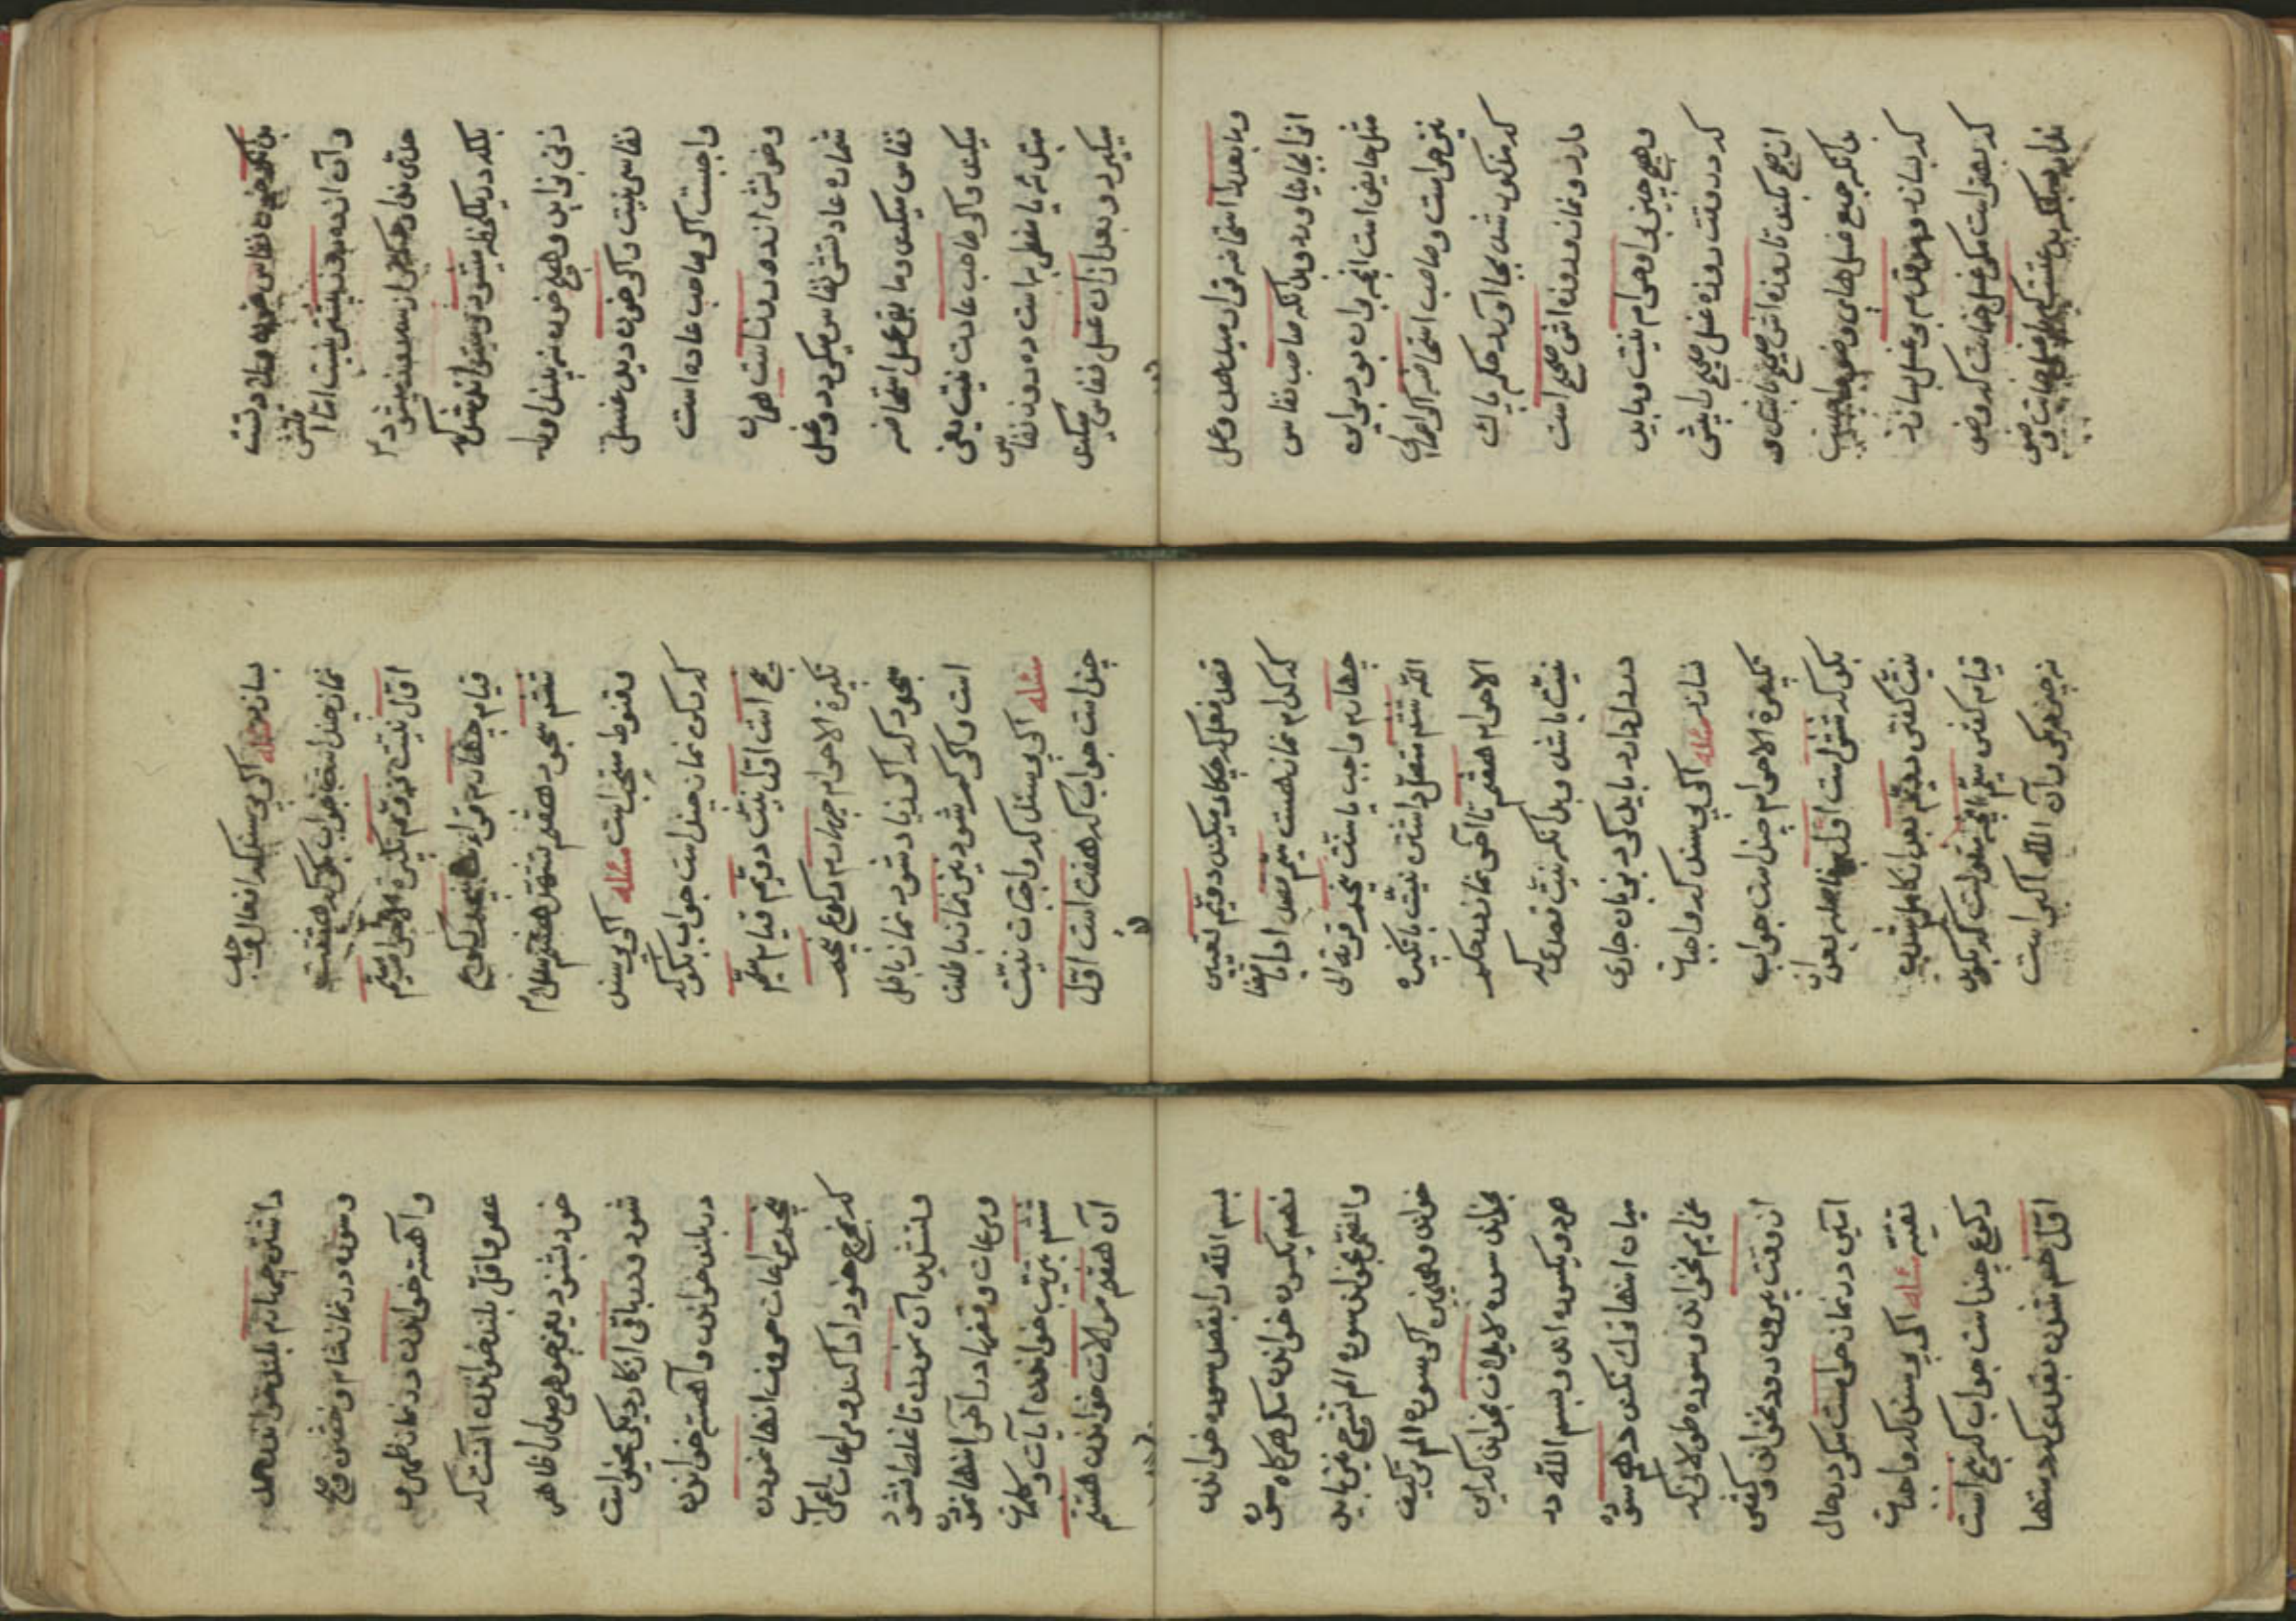 بدانکه خون نفاس خون ولادتست
و آن از ده روز بیشتر نیست امّا اقلش
حدّی ندارد
بلکه در یکلحظه میشود و میتواند شد که
زنی بزاید و هیچ خون نه بیند او را
نفاس نیست و اگر خون دید غسل
واجبست اگر صاحب عاده است
و خونش از ده روز نگذشت همان
شماره عادتش نفاس میگیرد و غسل
نفاس میکند و مابقی عمل استحاضه
میکند و اگر صاحب عادت نیست یعنی
مبتدئه یا مضطربه است ده روز نفاس
میگیرد و بعد از ان غسل نفاس میکند
و مابعد را استحاضه قرار میدهد و عمل
انرا بجا میاورد و بدانکه صاحب نفاس
مثل حایض است انچه بر ان بود بر این
نیز حرام است و صاحب استحاضه اگر اعمال
که مذکور شد بجا آورد حکم پاک
دارد و نماز و روزه اش صحیح است
و هیچ چیز بر او حرام نیست و باید
که در وقت روزه غسل صبح را پیش
از صبح بکند تا روزه اش صحیح باشد و
بدانکه جمیع غسلهای
که بسازد
مگر غسل جنابت که وضو
ندارد
بسازد مسئله اگر پرسند که افعال واجب
نماز چند است جواب بگو که هشتست
اوّل نیّت دویّم تکبیرة الاحرام سیّم
قیام چهارم قراءت پنجم رکوع
ششم سجود هفتم تشهّد هشتم سلام
و قنوط مستحب است مسئله اگر پرسند
که رکن نماز چند است جواب بگو که
پنج است اوّل نیّت دویّم قیام سیّم
تکبیرة الاحرام چهارم رکوع پنجم
سجود که اگر زیاد شود نماز باطل
است و اگر کم شود نیز نماز باطلست
مسئله اگر پرسند که واجبات نیّت
چند است جواب که هفت است اوّل
قصد فعل که چکار میکند دویّم تعیین
که کدام نماز هست سیّم قصد ادا یا قضا
چهارم واجب یا سنّت پنجم قربة الی
اللّه ششم متصّل داشتن نیّت با تکبیرة
الاحرام هفتم تا آخر نماز در حکم
نیّت باشد و بدانکه نیّت قصدی که
در دل دارد باید که بزبان جاری
سازد مسئله اگر پرسند که واجبات
تکبیرة الاحرام چند است جواب
بگو که شش است اوّل بعد از
نیّت گفتن دویّم بعد از کامل شدن
قیام گفتن سیّم انچه منقولست که بگوید
نه چیز دیگر و آن اللّه اکبر است
داشتن چهارم بلند خواندن حمد
و سوره در نماز شام و خفتن و صبح
و آهسته خواندن در نماز ظهر و
عصر و اقل بلند خواندن آنست که
خود بشنود یعنی جوهر صدا ظاهر
شود و در باقی اذکار دیگر مخیر است
در بلند خواندن و آهسته خواندن
پنجم مراعات حروف انها نمودن
که بمخرج خود ادا کند و مراعات اعراب
و تشدید آن نمودن تا غلط نشود
و مراعات وقفها در آخر انها نمودن
ششم بترتیب خواندن آیات و کلمات
آن هفتم موالات خواندن هشتم
بسم اللّه را بقصد سوره خواندن
نهم یکسوره خواندن مگر هرگاه سوره
والضحی بخواند سوره الم نشرح نیز باید
خواند و همچنین اگر سوره الم تر کیف
بخواند سوره لایلاف بخواند که این
هر دو یکسوره اند و بسم اللّه در
میان انها نکند دهم سوره
عزایم نخواند و سوره طولانی که
از وقت بیرون رود نخواند و گفتن
آمین در نماز حرامست مگر در حال
تقیّه مسئله اگر پرسند که واجبات
رکوع چند است جواب که پنج است
اوّل خم شدن بقدری که دستها